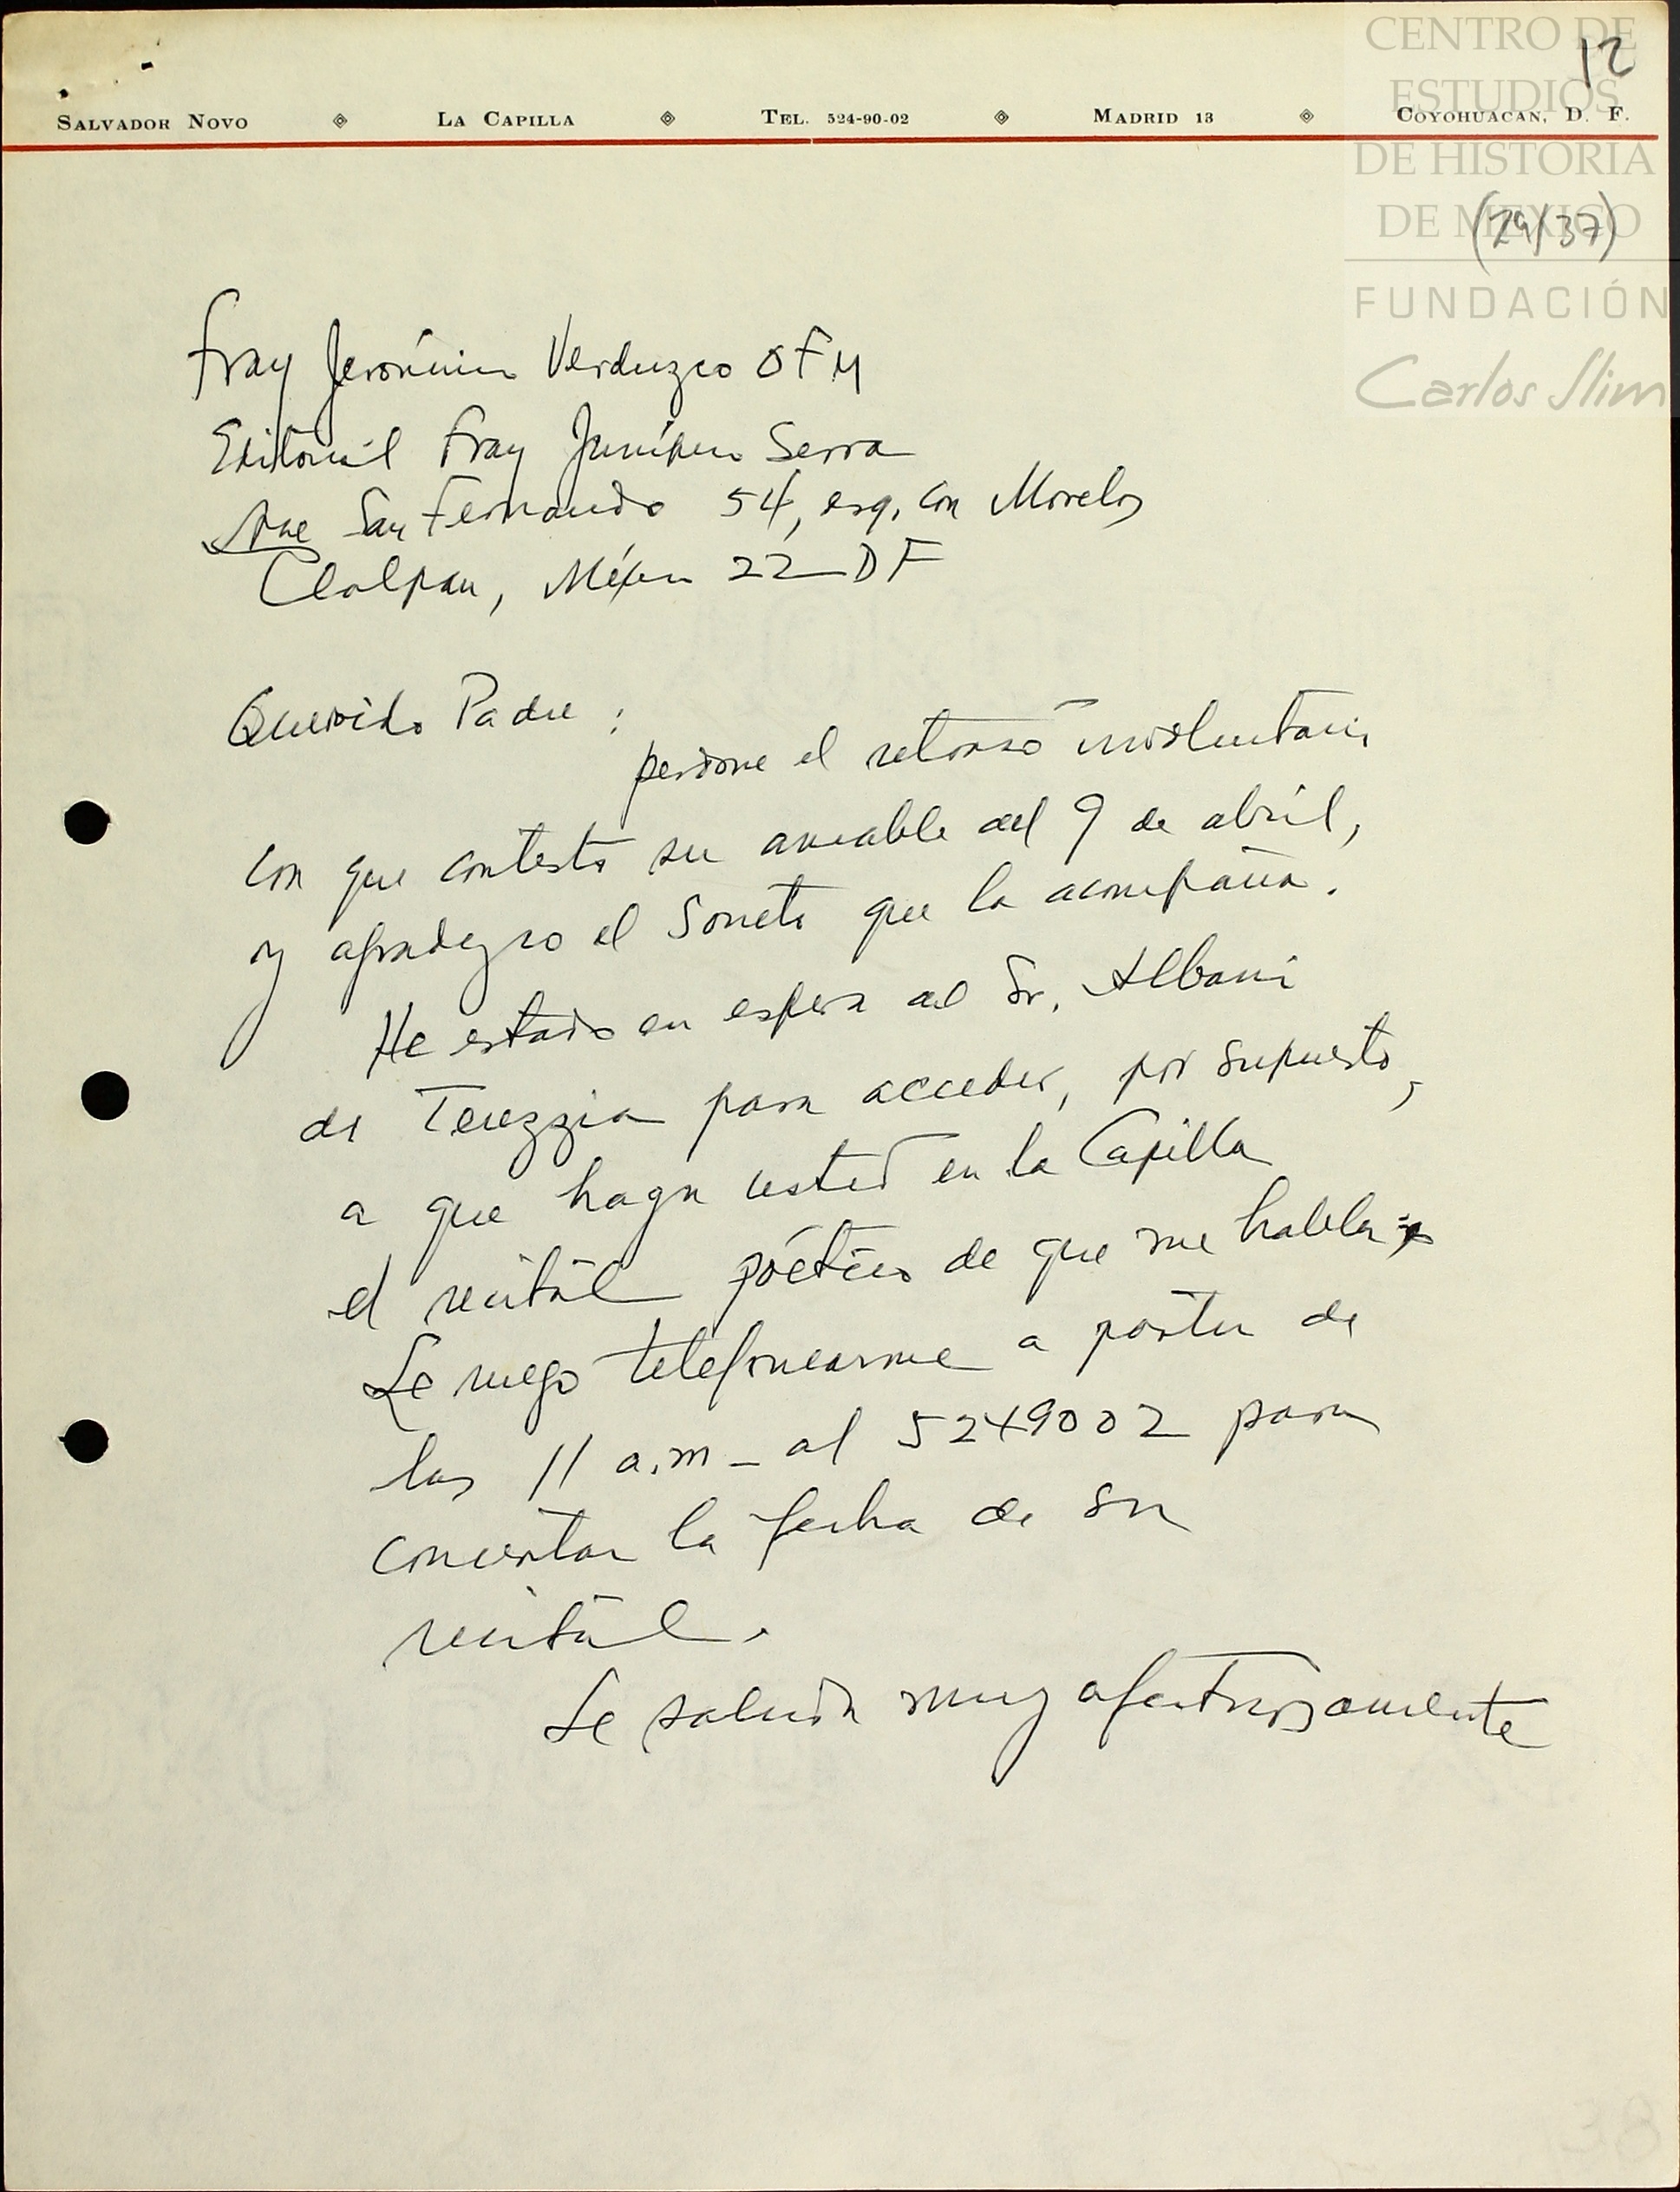 CENTRO DE
ESTUDIOS
DE HISTORIA
DE MEXICO
FUNDACIÓN
Carlos Slim
12
SALVADOR NOVO LA CAPILLA TEL. 524-90-02 MADRID 13 COYOHUACAN, D. F.
(29/37)
Fray Jerónimo Verduzco OFM
Editorial Fray Junípero Serra
Ave San Fernando 54, esq. con Morelos
Tlalpan, México 22 DF
Querido Padre :
perdone el retraso involuntario
con que contesto su amable del 9 de abril,
y agradezco el Soneto que la acompaña.
He estado en espera del Sr. Albani
de Terezzia para acceder, por supuesto,
a que haga usted en la Capilla
el recital poético de que me habla
Le ruego telefonearme a partir de
las 11 a.m - al 5249002 para
concertar la fecha de su
recital.
Le saluda muy afectuosamente